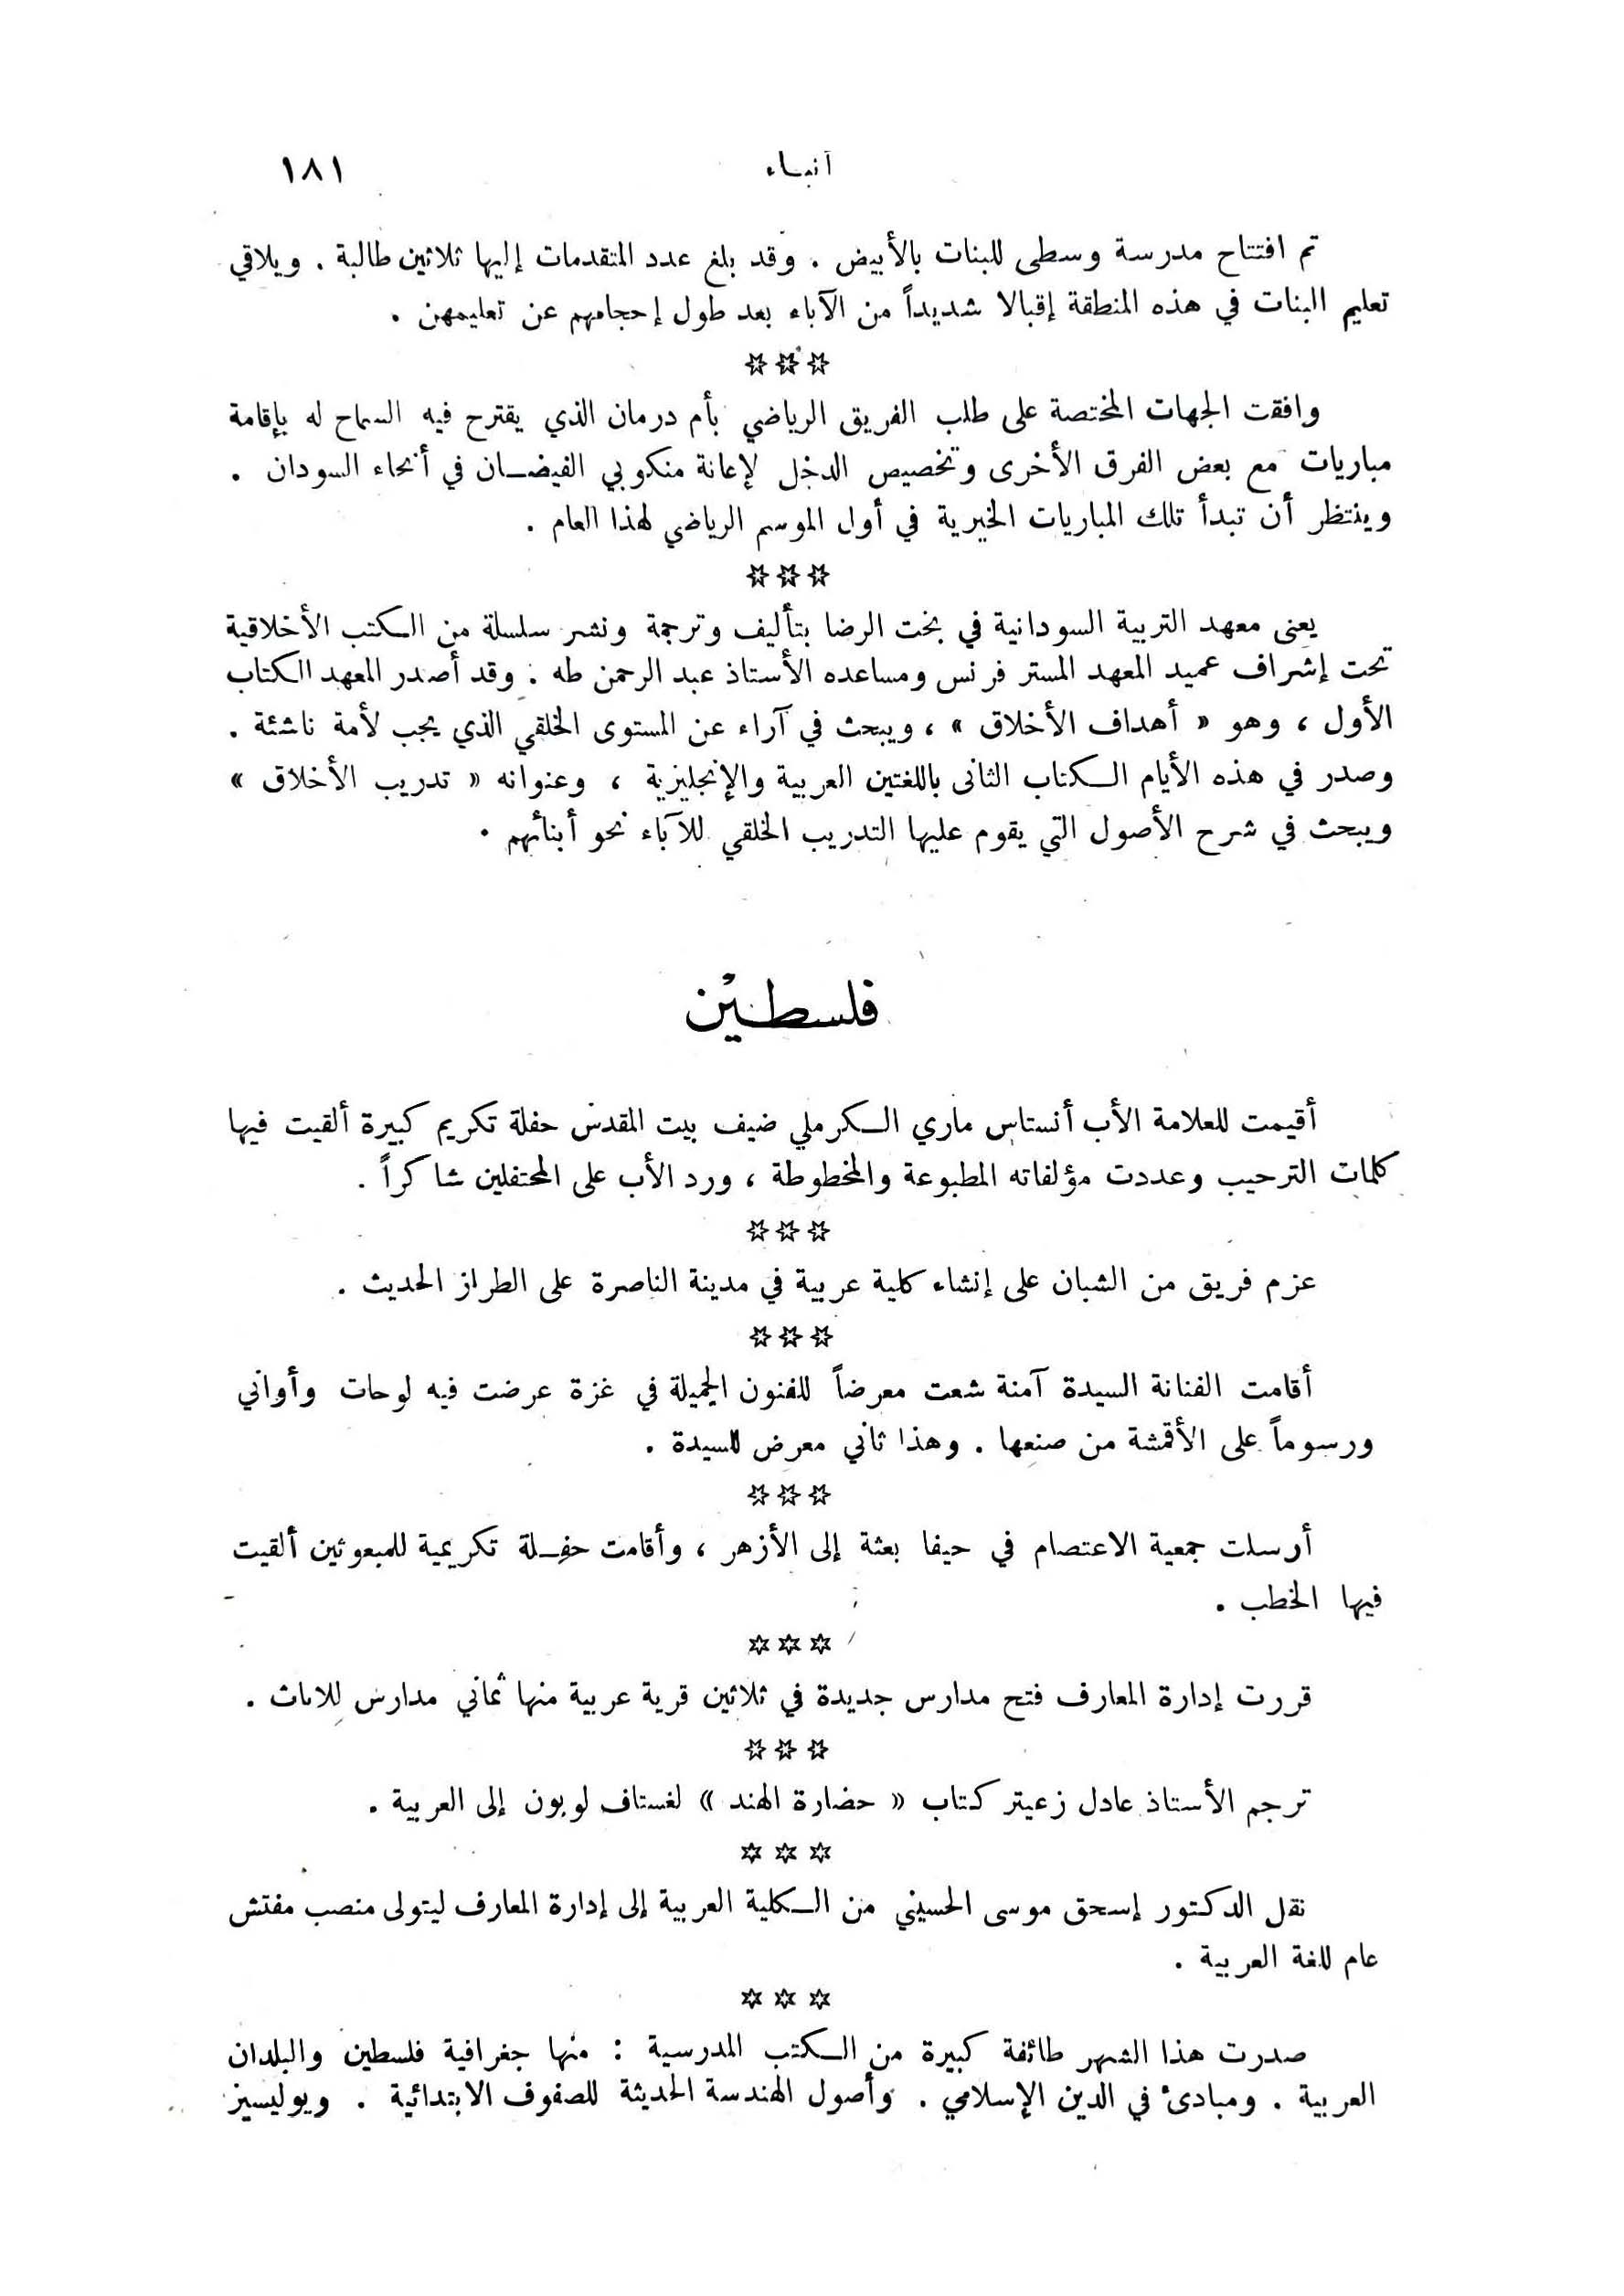 أنباء ١٨١
تم افتتاح مدرسة وسطى للبنات بالأبيض . وقد بلغ عدد المتقدمات إليها ثلاثين طالبة . ويلاقي
تعليم البنات في هذه المنطقة إقبالا شديداً من الآباء بعد طول إحجامهم عن تعليمهن .
✡✡✡
وافقت الجهات المختصة على طلب الفريق الرياضي بأم درمان الذي يقترح فيه السماح له بإقامة
مباريات مع بعض الفرق الأخرى وتخصيص الدخل لإعانة منكوبي الفيضان في أنحاء السودان .
وينتظر أن تبدأ تلك المباريات الخيرية في أول الموسم الرياضي لهذا العام .
✡✡✡
يعنى معهد التربية السودانية في بخت الرضا بتأليف وترجمة ونشر سلسلة من الكتب الأخلاقية
تحت إشراف عميد المعهد المستر فرنس ومساعده الأستاذ عبد الرحمن طه . وقد أصدر المعهد الكتاب
الأول ، وهو « أهداف الأخلاق » ، ويبحث في آراء عن المستوى الخلقي الذي يجب لأمة ناشئة .
وصدر في هذه الأيام الكتاب الثانى باللغتين العربية والإنجليزية ، وعنوانه « تدريب الأخلاق »
ويبحث في شرح الأصول التي يقوم عليها التدريب الخلقي للآباء نحو أبنائهم .
فلسطين
أقيمت للعلامة الأب أنستاس ماري الكرملي ضيف بيت المقدس حفلة تكريم كبيرة ألقيت فيها
كلمات الترحيب وعددت مؤلفاته المطبوعة والمخطوطة ، ورد الأب على المحتفلين شاكراً .
✡✡✡
عزم فريق من الشبان على إنشاء كلية عربية في مدينة الناصرة على الطراز الحديث .
✡✡✡
أقامت الفنانة السيدة آمنة شعت معرضاً للفنون الجميلة في غزة عرضت فيه لوحات وأواني
ورسوماً على الأقمشة من صنعها . وهذا ثاني معرض للسيدة .
✡✡✡
أرسلت جمعية الاعتصام في حيفا بعثة إلى الأزهر ، وأقامت حفلة تكريمية للمبعوثين ألقيت
فيها الخطب .
✡✡✡
قررت إدارة المعارف فتح مدارس جديدة في ثلاثين قرية عربية منها ثماني مدارس للاناث .
✡✡✡
ترجم الأستاذ عادل زعيتر كتاب « حضارة الهند » لغستاف لوبون إلى العربية .
✡✡✡
نقل الدكتور إسحق موسى الحسيني من الكلية العربية إلى إدارة المعارف ليتولى منصب مفتش
عام للغة العربية .
✡✡✡
صدرت هذا الشهر طائفة كبيرة من الكتب المدرسية : منها جغرافية فلسطين والبلدان
العربية . ومبادئ في الدين الإسلامي . وأصول الهندسة الحديثة للصفوف الابتدائية . ويوليسيز